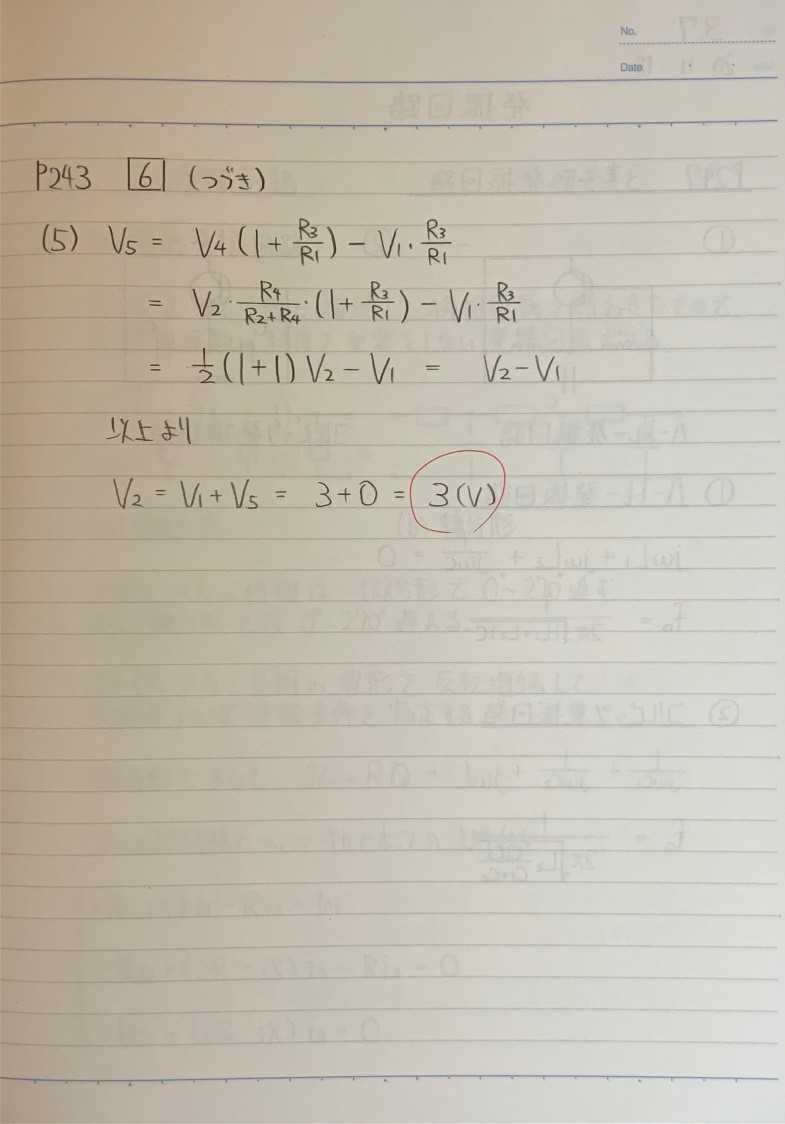 No.
Date
P243 6 (つづき)
(5) V5 = V4(1 + R3/R1) − V1・R3/R1
= V2・R4/(R2+R4)・(1 + R3/R1) − V1・R3/R1
= 1/2(1+1)V2 − V1 = V2 − V1
以上より
V2 = V1 + V5 = 3 + 0 = 3(V)